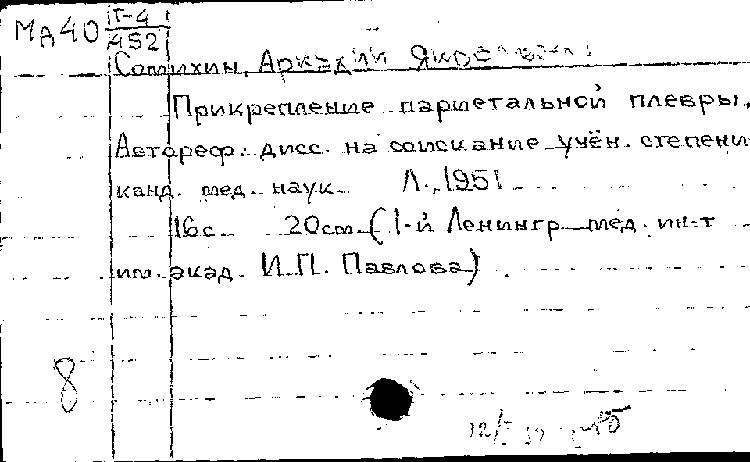 МД40 Т-4
452
Сопихин, Аркадий Яковлевич.
Прикрепление париетальной плевры.
Автореф. дисс. на соискание учён. степени
канд. мед. наук. Л., 1951
16с. 20см (1-й Ленингр. мед. ин-т
им. акад. И.П. Павлова)
8